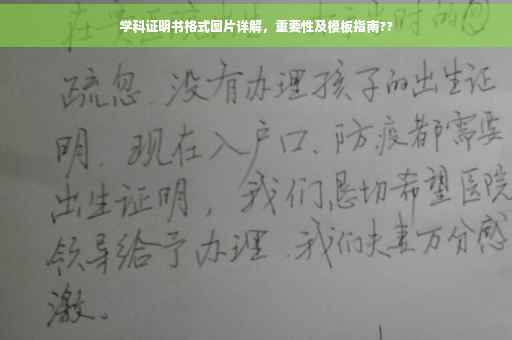 学科证明书格式图片详解，重要性及模板指南??
疏忽、没有办理孩子的出生证
明、现在入户口、防疫都需要
出生证明，我们恳切希望医院
领导给予办理、我们夫妻万分感
激。